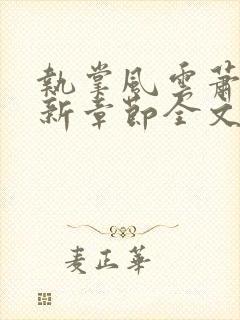 執掌風雲蕭
新章節全文
麦正華